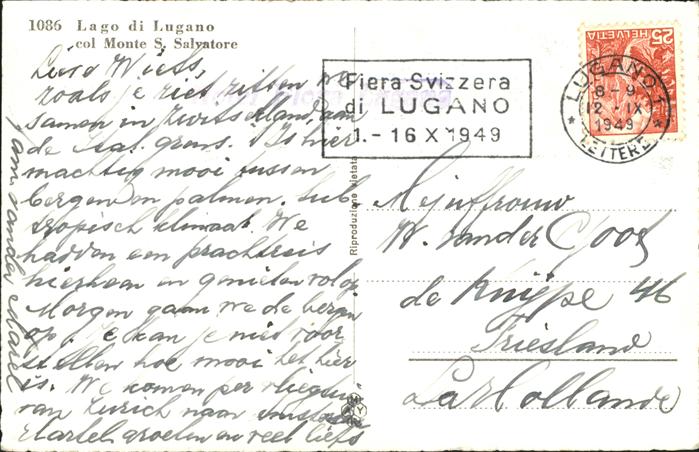 1086 Lago di Lugano
col Monte S. Salvatore
Lieve Wiets,
zoals je ziet zitten we
samen in Zwitserland, aan
de Ital. grens. 't Is hier
machtig mooi tussen
bergen en palmen. Sub
tropisch klimaat. We
hadden een prachtreis
hierheen en genieten volop
Morgen gaan we de bergen
op. Je kan je niet voor
stellen hoe mooi het hier
is. We komen per vliegtuig
van Zurich naar Amsterdam
Hartel. groeten en veel liefs
van
Fiera Svizzera
di LUGANO
1.-16 X 1949
HELVETIA
25
LUGANO 1
8-9
12. IX
1949
LETTERE
Riproduzione vietata
Mejuffrouw
W. van der Cloot
de Knijpe 46
Friesland
La Hollande